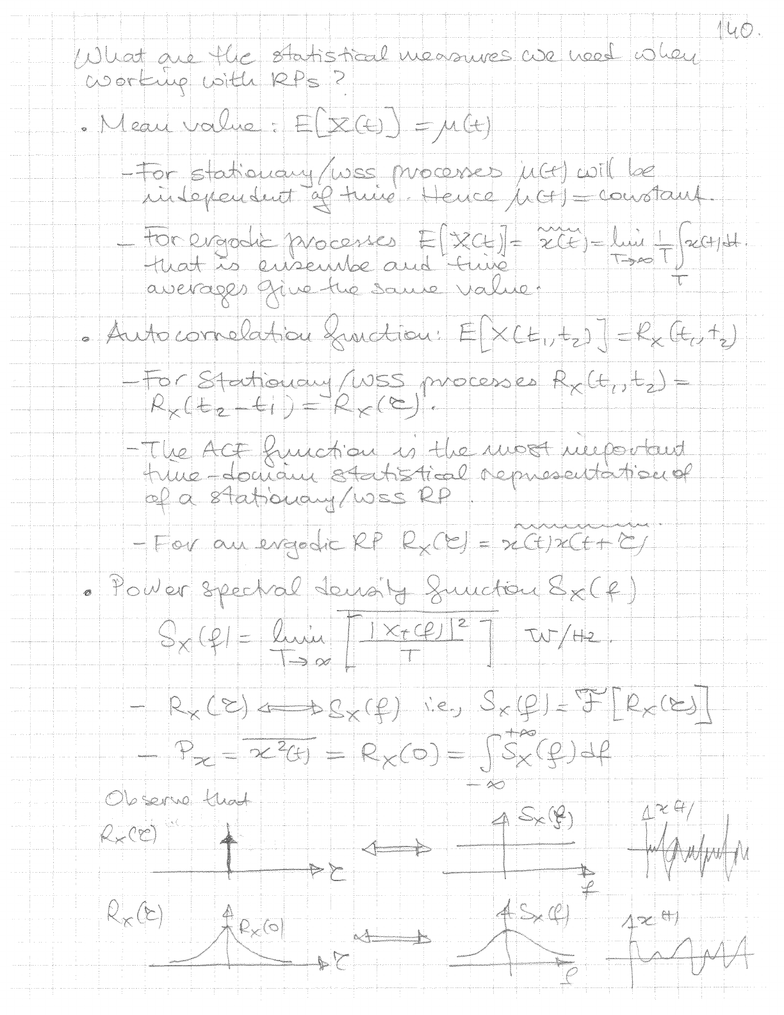 140.
What are the statistical measures we need when
working with RPs?
• Mean value: E[X(t)] = μ(t)
- For stationary/wss processes μ(t) will be
independent of time. Hence μ(t) = constant.
- For ergodic processes E[X(t)] = x(t) = lim T→∞ 1/T ∫_T x(t)dt.
that is ensembe and time
averages give the same value.
• Autocorrelation function: E[X(t₁,t₂)] = Rx(t₁,t₂)
- For Stationary/WSS processes Rx(t₁,t₂) =
Rx(t₂-t₁) = Rx(τ).
- The ACF function is the most important
time-domain statistical representation of
of a stationary/wss RP.
- For an ergodic RP Rx(τ) = x(t)x(t+τ)
• Power spectral density function Sx(f)
Sx(f) = lim T→∞ [|X_T(f)|²/T] W/Hz.
- Rx(τ) ⟺ Sx(f) i.e., Sx(f) = F[Rx(τ)]
- Px = x²(t) = Rx(0) = ∫_{-∞}^{+∞} Sx(f) df
Observe that
Rx(τ) τ ⟺ Sx(f) f x(t)
Rx(τ) Rx(0) τ ⟺ Sx(f) f x(t)